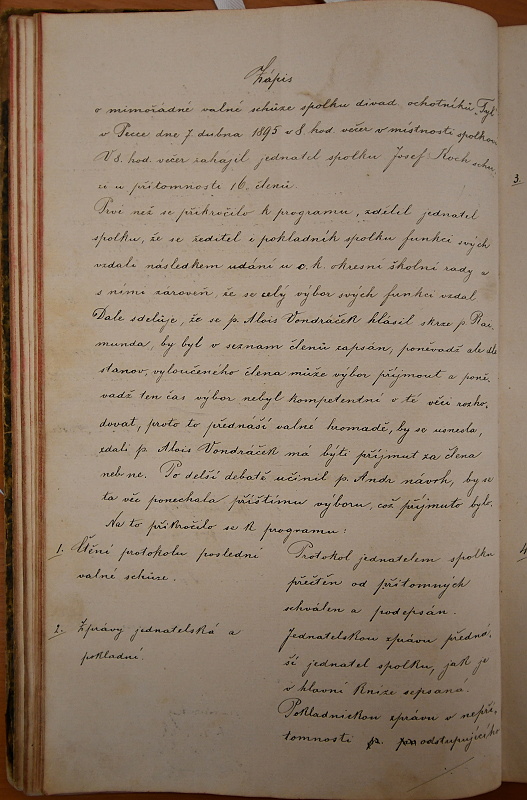 Zápis
o mimořádné valné schůze spolku divad. ochotníků „Tyl"
v Pecce dne 7 dubna 1895 v 8 hod večer v místnosti spolkov.
V 8. hod. večer zahájil jednatel spolku Josef Koch schů-
zi u přítomnosti 16. členů.
Prvé než se překročilo k programu, zdělil jednatel
spolku, že se ředitel i pokladník spolku funkcí svých
vzdali následkem udání u c. k. okresní školní rady a
s nimi zároveň, že se celý výbor svých funkcí vzdal.
Dále sděluje, že se p. Alois Vondráček hlásil skrze p. Rai-
munda, by byl v seznam členů zapsán, poněvadž ale dle
stanov, vyloučeného člena může výbor přijmout a poně-
vadž ten čas výbor nebyl kompetentní v té věci rozho-
dovat, proto to přednáší valné hromadě, by se usnesla,
zdali p. Alois Vondráček má býti přijmut za člena
neb ne. Po delší debatě učinil p. Andr návrh, by se
ta věc ponechala příštímu výboru, což přijmuto bylo.
Na to přikročilo se k programu:
1. Čtění protokolu poslední
valné schůze.
Protokol jednatelem spolku
přečtěn od přítomných
schválen a podepsán.
2. Zprávy jednatelská a
pokladní.
Jednatelskou zprávu předná-
ší jednatel spolku, jak je
v hlavní knize sepsaná.
Pokladnickou zprávu v nepří-
tomnosti odstupujícího
3.
4.